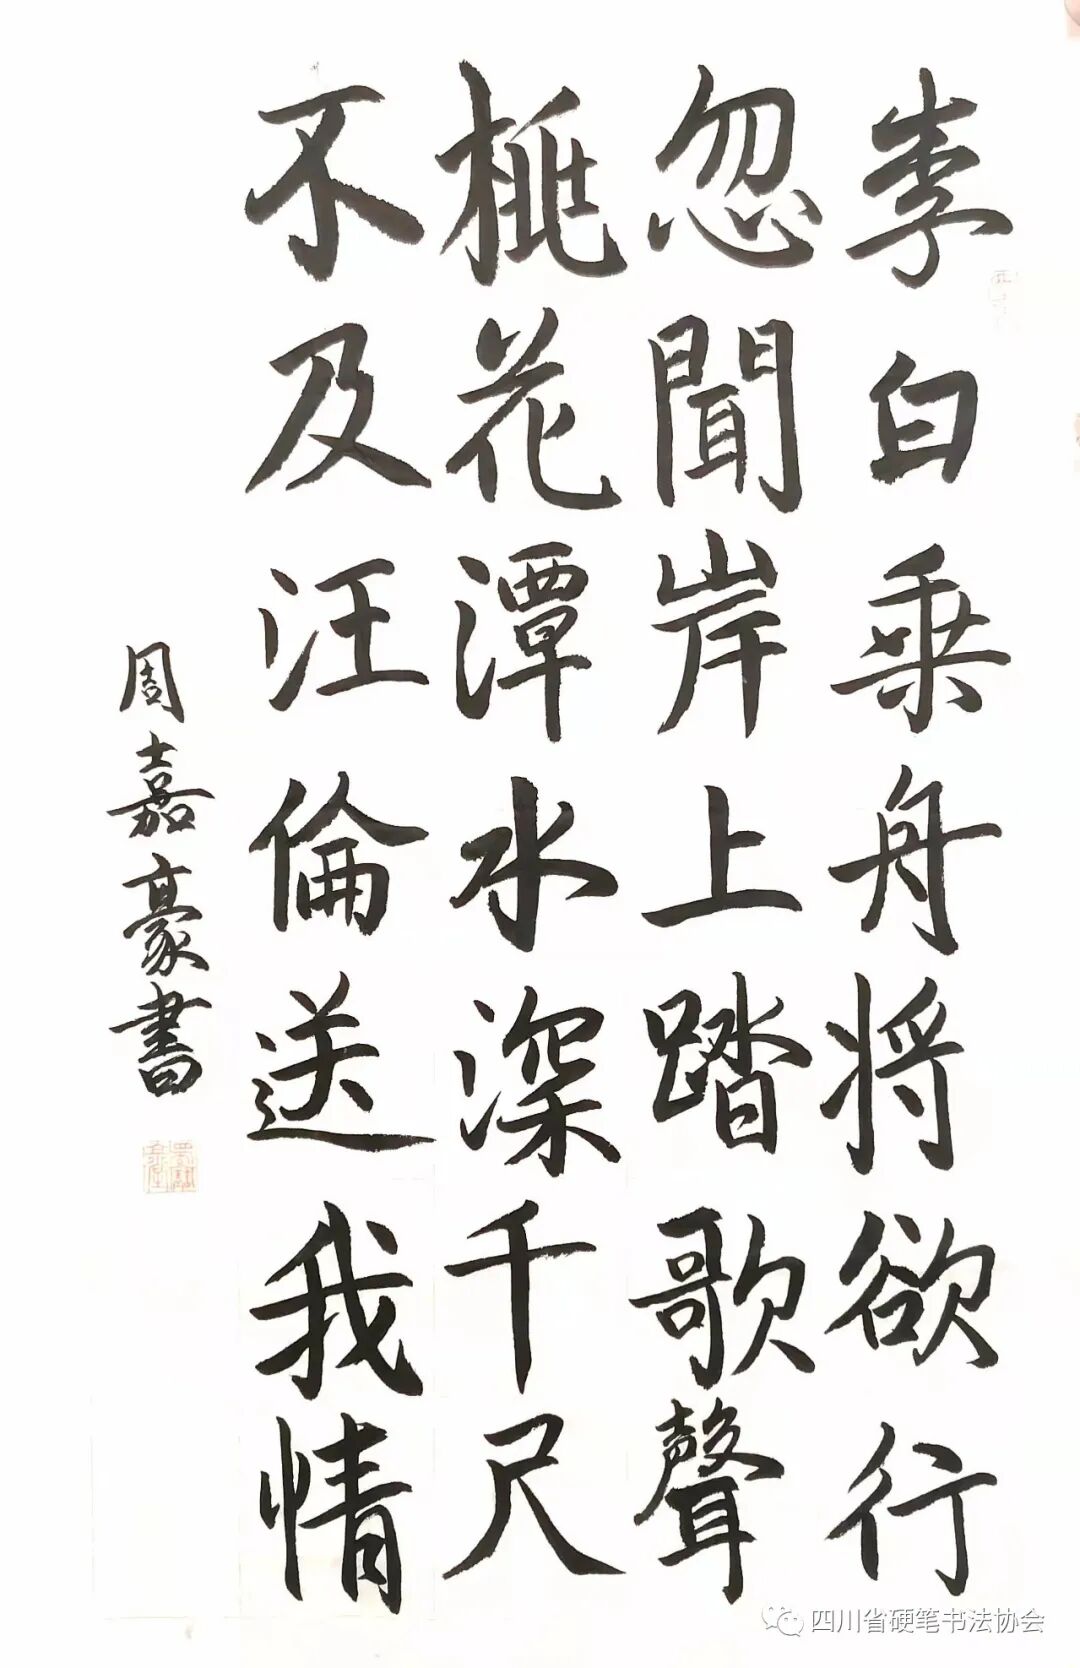 李白乗舟将欲行
忽聞岸上踏歌聲
桃花潭水深千尺
不及汪倫送我情
周嘉豪書
四川省硬笔书法协会